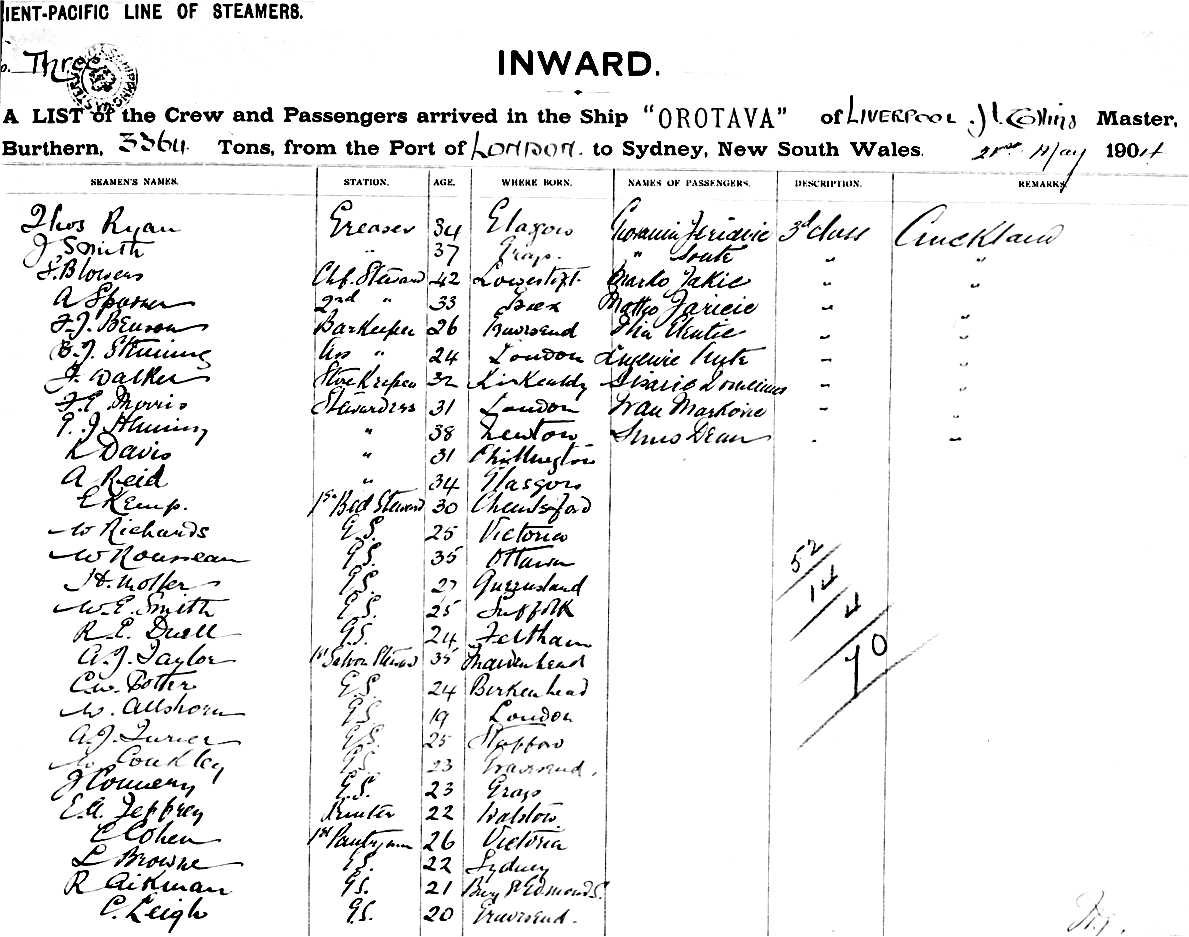 IENT-PACIFIC LINE OF STEAMERS.
o. Three
INWARD.
A LIST of the Crew and Passengers arrived in the Ship "OROTAVA" of LIVERPOOL J Collins Master,
Burthern, 3364 Tons, from the Port of LONDON. to Sydney, New South Wales. May 1904
SEAMEN'S NAMES. STATION. AGE. WHERE BORN. NAMES OF PASSENGERS. DESCRIPTION. REMARKS
Thos Ryan Greaser 34 Glasgow 3rd class Auckland
J Smith " 37 Grays. " " "
F. Blowers Chf. Steward 42 Lowestoft Marko " "
A Sparner 2nd " 33 Essex Matteo " "
F. J. Benson Barkeeper 26 Gravesend " "
Ass " 24 London " "
J. Walker Storekeeper 32 Kirkcaldy " "
F. E. Morris Stewardess 31 London Ivan Markovic " "
" 38 Dean " "
K Davis " 31
A Reid " 34 Glasgow
E Kemp. 1st Bed Steward 30 Chelmsford
W Richards G.S. 25 Victoria
W Rousseau G.S. 35 Ottawa
G.S. 27 Queensland
W. E. Smith G.S. 25 Suffolk
R. E. Duell G.S. 24 Feltham
A. J. Taylor 1st Saloon Steward 35 Maidenhead
C. W. Potter G.S. 24 Birkenhead
W. Allshorn G.S. 19 London
A. J. Turner G.S. 25
W. Conkley G.S. 23 Gravesend.
J Connery G.S. 23 Grays
E. A. Jeffrey Printer 22
C Cohen 1st Pantryman 26 Victoria
L Browne G.S. 22 Sydney
R Aikman G.S. 21 Bury St Edmonds.
C. Leigh G.S. 20 Gravesend.
52
14
4
70